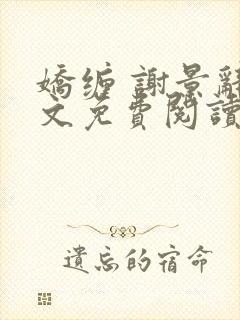 嬌纏 謝景辭
文免費閱讀
遺忘的宿命